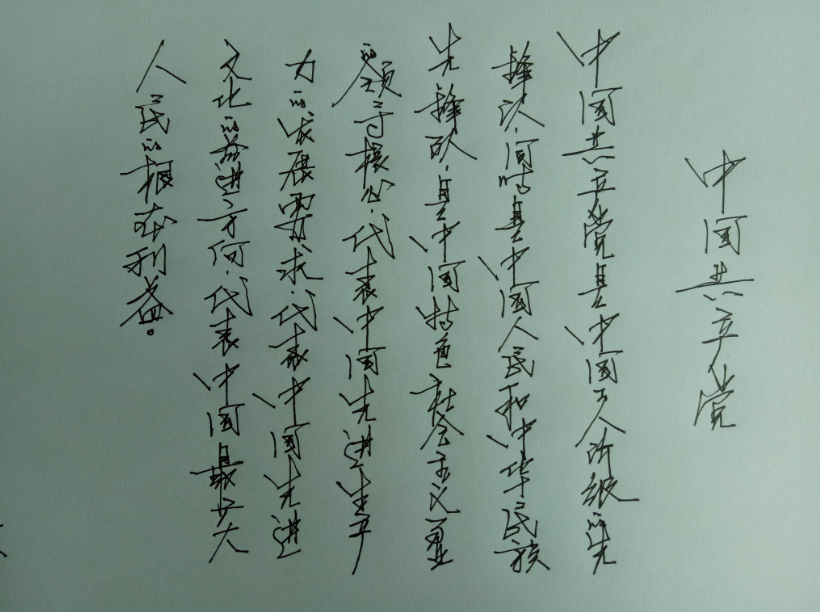 中国共产党
中国共产党是中国工人阶级的先
锋队,同时是中国人民和中华民族
先锋队,是中国特色社会主义事业
的领导核心,代表中国先进生产
力的发展要求,代表中国先进
文化的前进方向,代表中国最广大
人民的根本利益。